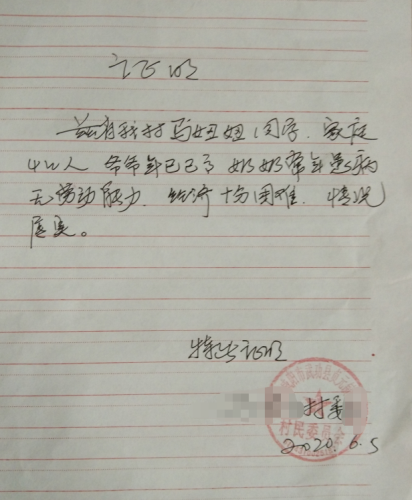 证明
兹有我村马妞妞同学、家庭
4口人 爷爷年已已了 奶奶常年患病
无劳动能力、经济十分困难、情况
属实。
特出证明
村委
村民委员会
2020.6.5